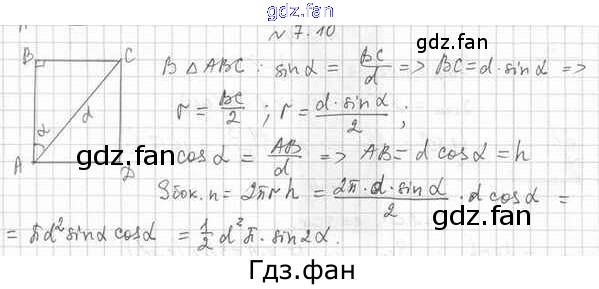 gdz.fan
№ 7.10
gdz.fan
B C
В △ ABC : sin α = BC/d => BC = d · sin α =>
α d
r = BC/2 ; r = d · sin α/2 ;
gdz.fan
A D
cos α = AB/d => AB = d cos α = h
Sбок. п = 2πrh = 2π · d · sin α/2 · d cos α =
gdz.fan
= πd² sin α cos α = 1/2 d² π · sin 2α.
Гдз.фан